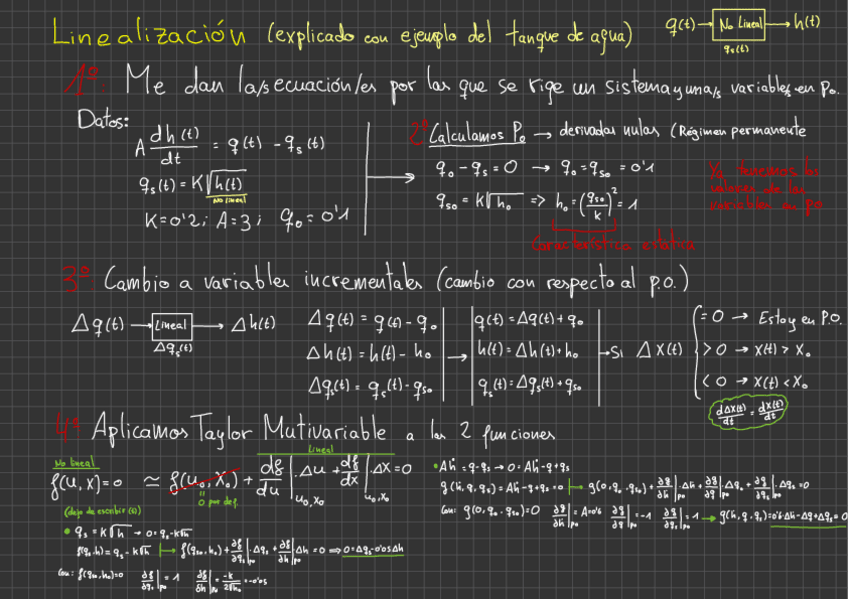 Linealización (explicado con ejemplo del tanque de agua)
q(t) → No Lineal → h(t)
qs(t)
1º: Me dan la/s ecuación/es por las que se rige un sistema y una/s variable/s en Po.
Datos:
A dh(t)/dt = q(t) - qs(t)
qs(t) = K√h(t)
No lineal
K=0'2; A=3; qo=0'1
2º Calculamos Po → derivadas nulas (Régimen permanente
qo - qs = 0 → qo = qso = 0'1
qso = K√ho => ho = (qso/K)² = 1
Característica estática
Ya tenemos los
valores de las
variables en po
3º: Cambio a variables incrementales (cambio con respecto al p.o.)
Δq(t) → Lineal → Δh(t)
Δqs(t)
Δq(t) = q(t) - qo
Δh(t) = h(t) - ho
Δqs(t) = qs(t) - qso
q(t) = Δq(t) + qo
h(t) = Δh(t) + ho
qs(t) = Δqs(t) + qso
→ Si Δx(t)
= 0 → Estoy en P.O.
> 0 → x(t) > xo
< 0 → x(t) < xo
dΔx(t)/dt = dx(t)/dt
4º Aplicamos Taylor Mutivariable a las 2 funciones
No lineal
Lineal
f(u,x)=0 ≃ f(uo,xo) + df/du|uo,xo · Δu + df/dx|uo,xo · Δx = 0
0 por def.
(dejo de escribir (t))
• qs = K√h → 0 = qs - K√h
f(qs,h) = qs - K√h ↦ f(qso,ho) + ∂f/∂qs|po · Δqs + ∂f/∂h|po Δh = 0 ⇒ 0 = Δqs - 0'05Δh
Con: f(qso,ho)=0 ∂f/∂qs|po = 1 ∂f/∂h|po = -K/2√ho = -0'05